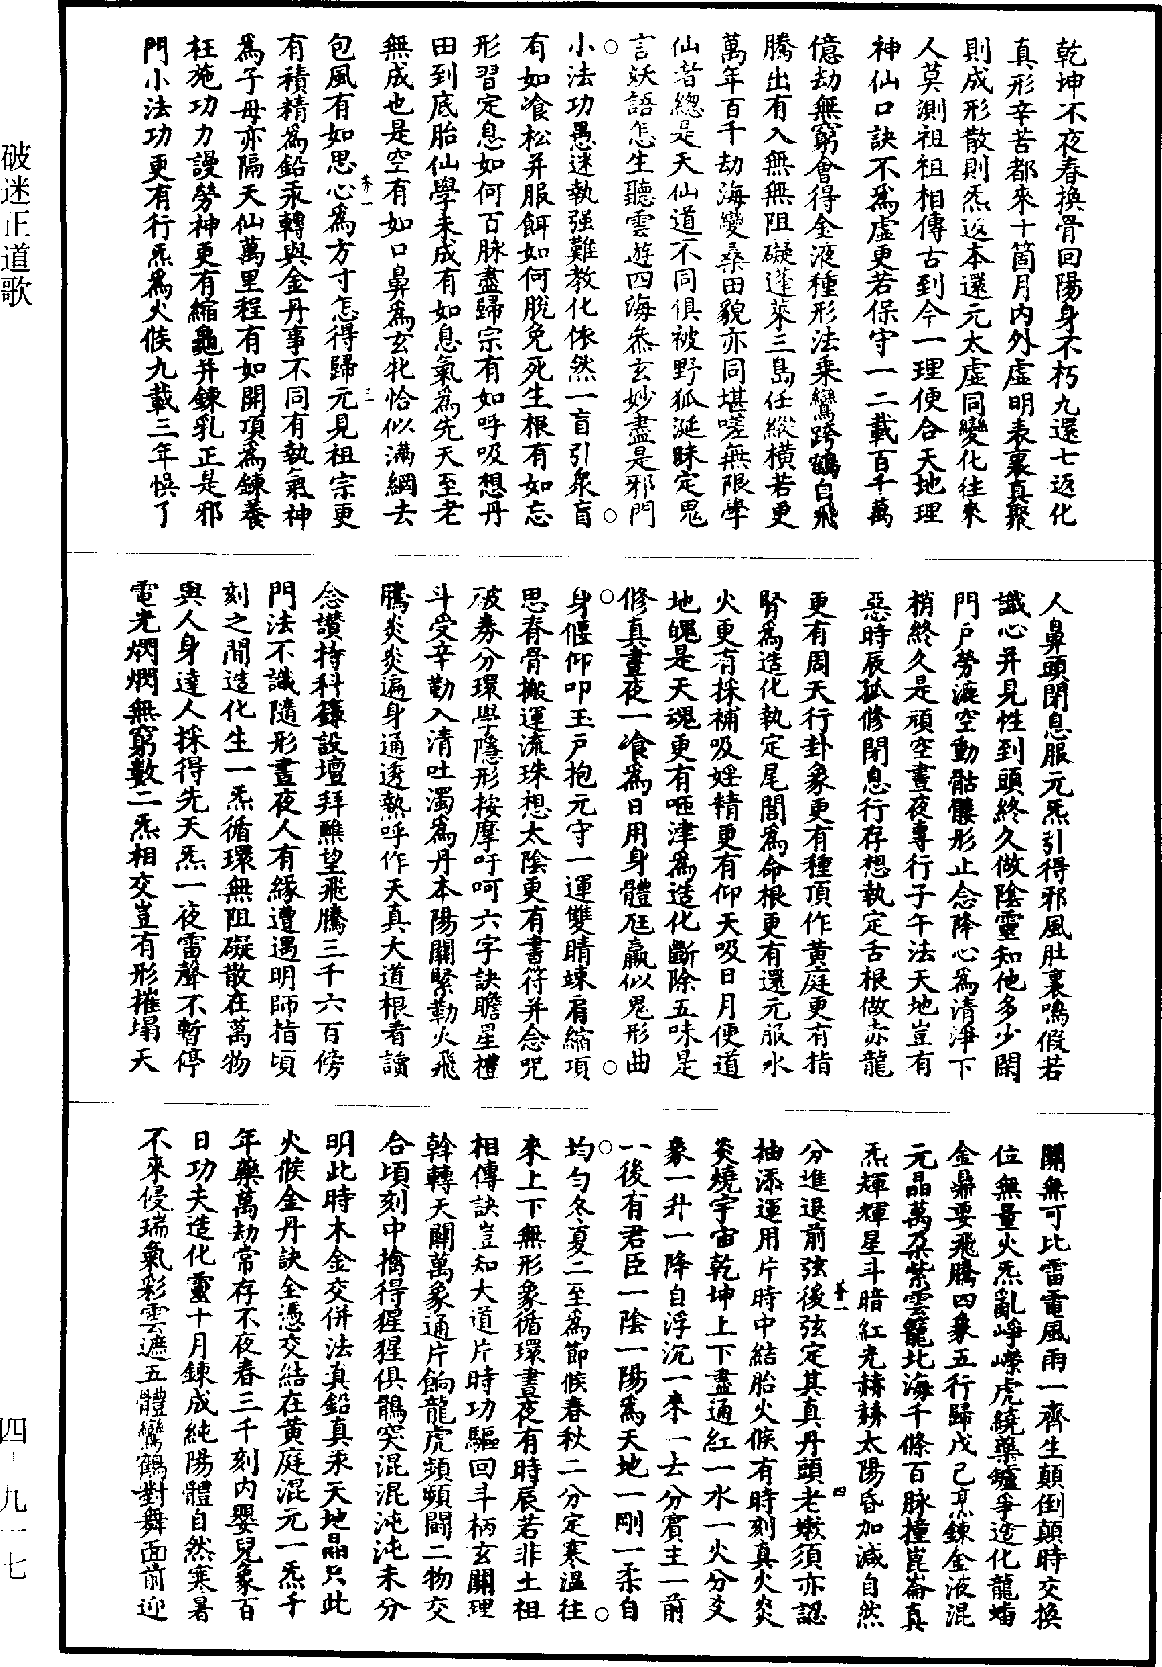 乾坤不夜春換骨回陽身不朽九還七返化
真形辛苦都來十箇月內外虛明表裏真聚
則成形散則炁返本還元太虛同變化往來
人莫測祖祖相傳古到今一理便合天地理
神仙口訣不為虛更若保守一二載百千萬
億劫無窮會得金液種形法乘鸞跨鶴自飛
騰出有入無無阻礙蓬萊三島任縱橫若更
萬年百千劫海變桑田貌亦同堪嗟無限學
仙者總是天仙道不同俱被野狐涎昧定鬼
言妖語怎生聽雲遊四海叅玄妙盡是邪門
小法功愚迷執强難教化依然一盲引衆盲
有如飡松并服餌如何脫免死生根有如忘
形習定息如何百脉盡歸宗有如呼吸想丹
田到底胎仙學未成有如息氣為先天至老
無成也是空有如口鼻為玄牝恰似滿綱去
包風有如思心為方寸怎得歸元見祖宗更
有積精為鉛汞轉與金丹事不同有執氣神
為子母亦隔天仙萬里程有如開頂為鍊養
枉施功力謾勞神更有縮龜并鍊乳正是邪
門小法功更有行炁為火候九載三年悞了
人鼻頭閉息服元炁引得邪風肚裏鳴假若
識心并見性到頭終久做陰靈和他多少閑
門戶勞漉空動骷髏形止念降心為清淨下
梢終久是頑空晝夜專行子午法天地豈有
惡時辰孤修閉息行存想執定舌根做赤龍
更有周天行卦象更有種頂作黃庭更有指
腎為造化執定尾閭為命根更有還元服水
火更有採補吸婬精更有仰天吸日月便道
地魄是天魂更有咂津為造化斷除五味是
修真晝夜一飡為日用身體尫羸似鬼形曲
身偃仰叩玉戶抱元守一運雙睛竦肩縮項
思脊骨搬運流珠想太陰更有書符并念咒
破劵分環學隱形按摩吁呵六字訣瞻星禮
斗受辛勤入清吐濁為丹本陽關緊勒火飛
騰炎炎遍身通透熱呼作天真大道根看讀
念讚持科籙設壇拜醮望飛騰三千六百傍
門法不識隨形晝夜人有緣遭遇明師指頃
刻之間造化生一炁循環無阻礙散在萬物
與人身達人採得先天炁一夜雷聲不暫停
電光燜燜無窮數二炁相交豈有形摧塌天
關無可比雷電風雨一齊生顛倒顛時交換
位無量火炁亂崢嶸虎繞藥爐爭造化龍蟠
金鼎要飛騰四象五行歸戊己烹鍊金液混
元晶萬朶紫雲籠北海千條百脉撞崑崙真
炁輝輝星斗暗紅光赫赫太陽昏加減自然
分進退前弦後弦定其真丹頭老嫩須亦認
抽添運用片時中結胎火候有時刻真火炎
炎燒宇宙乾坤上下盡通紅一水一火分爻
象一升一降自浮沉一來一去分賓主一前
一後有君臣一陰一陽為天地一剛一柔自
均勻冬夏二至為節候春秋二分定寒溫往
來上下無形象循環晝夜有時辰若非土祖
相傳訣豈知大道片時功驅回斗柄玄關理
斡轉天關萬象通片餉龍虎頻頻鬪二物交
合頃刻中擒得猩猩俱鶻突混混沌沌未分
明此時木金交併法真鉛真汞天地晶只此
火候金丹訣全憑交結在黃庭混元一炁千
年藥萬劫常存不夜春三千刻內嬰兒象百
日功夫造化靈十月鍊成純陽體自然寒暑
不來侵瑞氣彩雲遮五體鸞鶴對舞面前迎
破迷正道歌
四—九一七